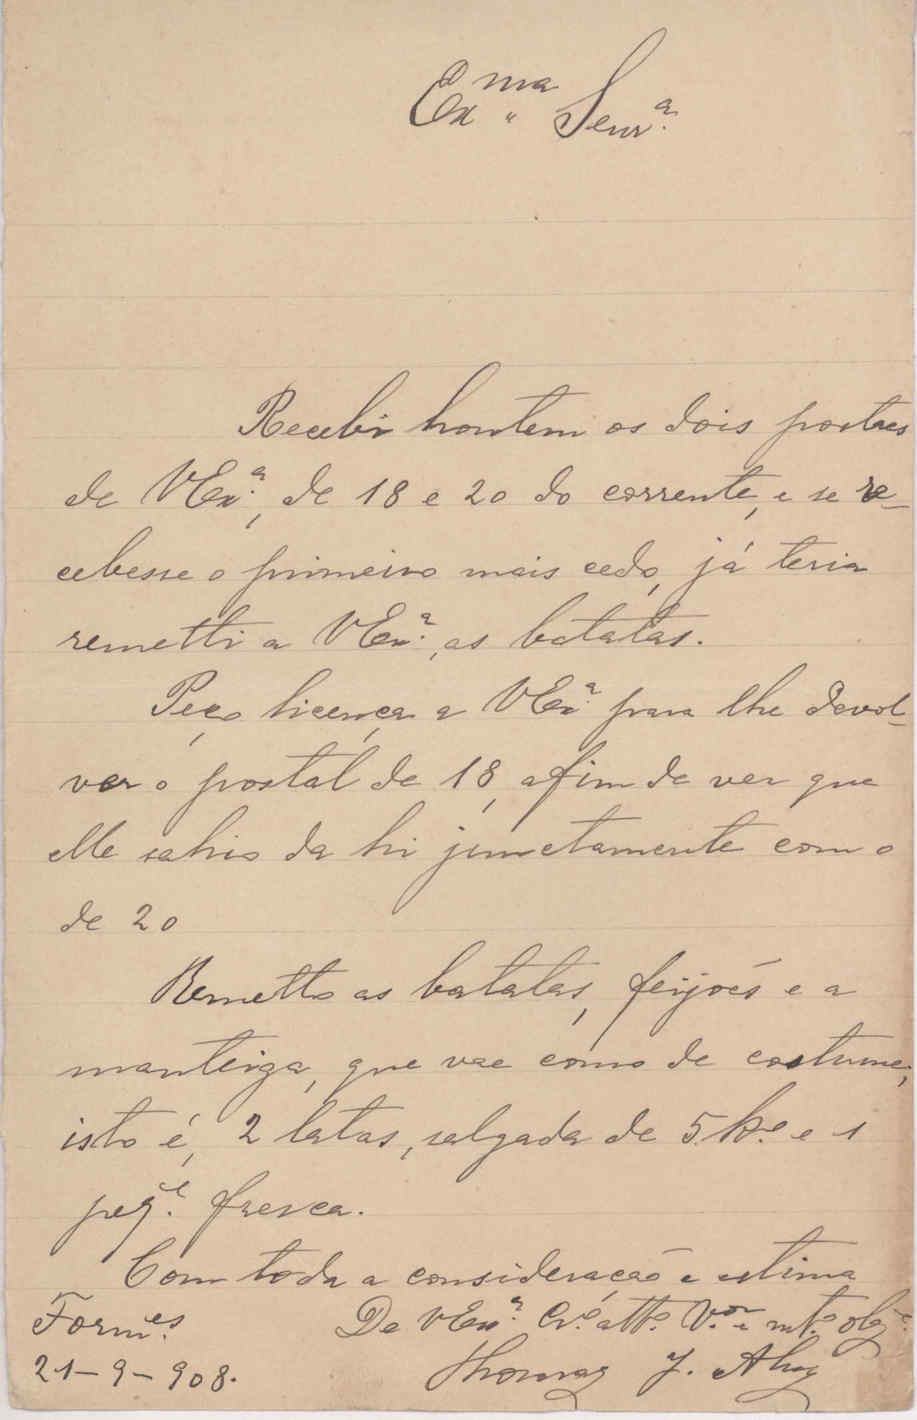 Exma Senra.
Recebi hontem os dois postaes
de VExa., de 18 e 20 do corrente, e se re-
cebesse o primeiro mais cedo, já teria
remetti a VExa., as batatas.
Peço licença a VExa. para lhe devol-
ver o postal de 18, afim de ver que
elle sahio da hi junctamente com o
de 20
Remetto as batatas, feijoés e a
manteiga, que vae como de costume,
isto é, 2 latas, salgada de 5 ko. e 1
peqe. fresca.
Com toda a consideração e estima
De VExa. Cro. atto. Vor. e mto. obgo.
Formes.
21-9-908.
Thomaz J.